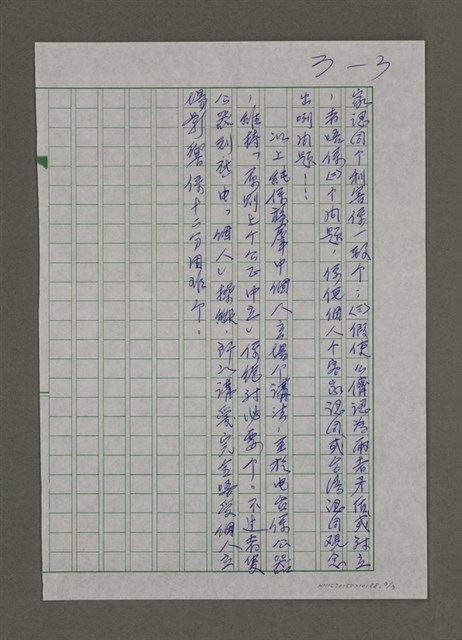 3－3
家認同个利害係一致个；㈢假使亻儕認為兩者矛盾或對立
，者唔係㈡个問題，係佢個人个客家認同或台灣認同觀念
出咧問題！
以上純係鸞中個人立場个講法，至於電台係公器
，維持「原則上个公正中立」係絕對必要个！不過者使
公器到於由「個人」操縱，所以講愛完全唔受個人立
場影響係十二分困難个。